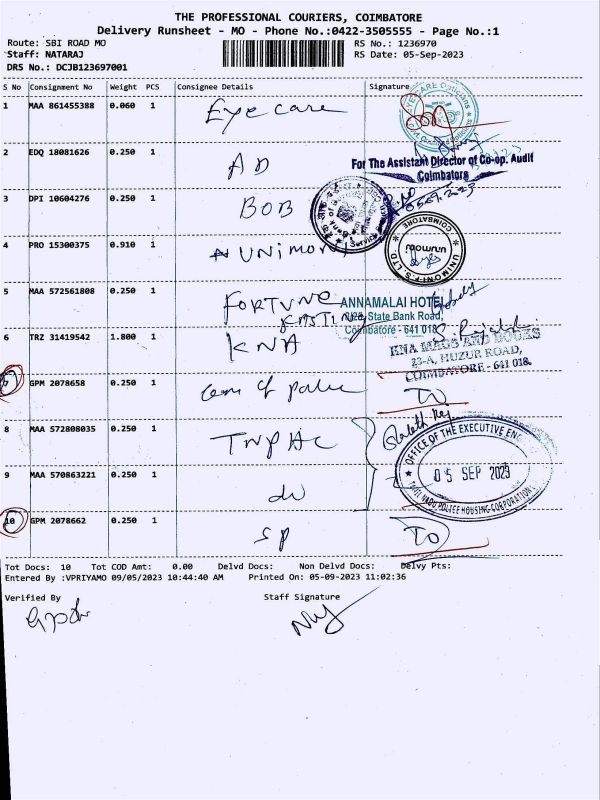 THE PROFESSIONAL COURIERS, COIMBATORE
Delivery Runsheet - MO - Phone No.:0422-3505555 - Page No.:1
Route: SBI ROAD MO RS No.: 1236970
Staff: NATARAJ RS Date: 05-Sep-2023
DRS No.: DCJB123697001
S No Consignment No Weight PCS Consignee Details Signature
1 MAA 861455388 0.060 1 Eye care
EYE CARE Opticians
2 EDQ 18081626 0.250 1 AD
For The Assistant Director of Co-op. Audit
Coimbatore
3 DPI 10604276 0.250 1 BOB
05.09.2023
4 PRO 15300375 0.910 1 UNIMONI
COIMBATORE
UNIMONI
UNIMONI'S LTD
5 MAA 572561808 0.250 1 FORTUNE
ANNAMALAI HOTEL
State Bank Road,
Coimbatore - 641 018
6 TRZ 31419542 1.800 1 KNA
KNA MAGS AND BOOKS
23-A, HUZUR ROAD,
COIMBATORE - 641 018.
7 GPM 2078658 0.250 1 com of police TO
8 MAA 572808035 0.250 1 TNPHC
OFFICE OF THE EXECUTIVE
05 SEP 2023
TAMIL NADU POLICE HOUSING CORPORATION
9 MAA 570863221 0.250 1 do
10 GPM 2078662 0.250 1 SP TO
Tot Docs: 10 Tot COD Amt: 0.00 Delvd Docs: Non Delvd Docs: Delvy Pts:
Entered By :VPRIYAMO 09/05/2023 10:44:40 AM Printed On: 05-09-2023 11:02:36
Verified By Staff Signature